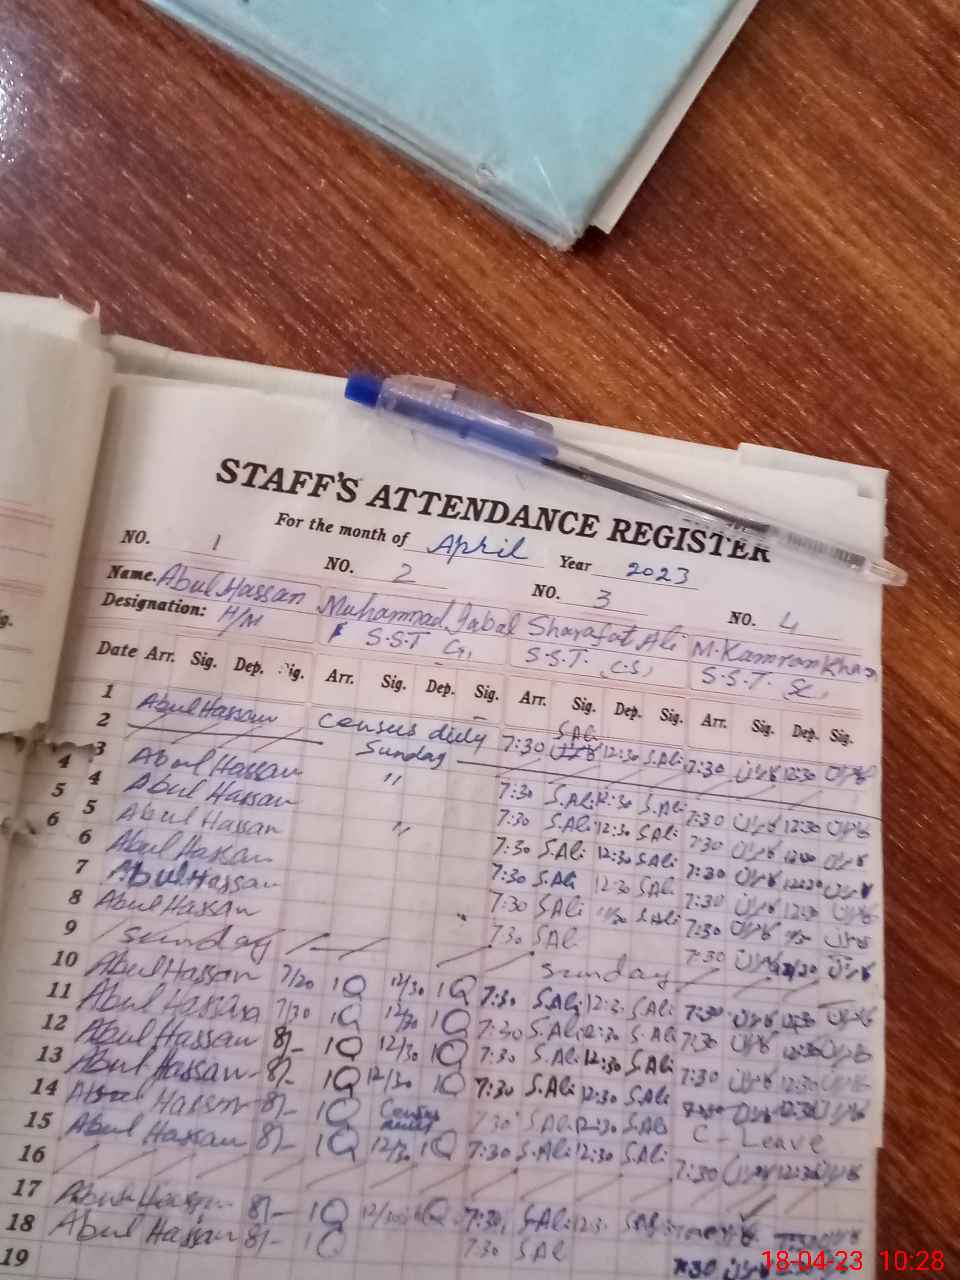 STAFF'S ATTENDANCE REGISTER
For the month of April Year 2023
NO. 1 NO. 2 NO. 3 NO. 4
Name. Abul Hassan Muhammad Iqbal Sharafat Ali M. Kamran Khan
Designation: H/M S.S.T G, S.S.T. C.S, S.S.T. Sc,
Date Arr. Sig. Dep. Sig. Arr. Sig. Dep. Sig. Arr. Sig. Dep. Sig. Arr. Sig. Dep. Sig.
1 Abul Hassan Census duty 7:30 S.Ali 12:30 S.Ali 7:30 کامران 12:30 کامران
2 Sunday
3 Abul Hassan " 7:30 S.Ali 12:30 S.Ali 7:30 کامران 12:30 کامران
4 4 Abul Hassan 7:30 S.Ali 12:30 S.Ali 7:30 کامران کامران
5 5 Abul Hassan " 7:30 S.Ali 12:30 S.Ali 7:30 کامران کامران
6 6 Abul Hassan 7:30 S.Ali 12:30 S.Ali 7:30 کامران 12:30 کامران
7 Abul Hassan 7:30 S.Ali S.Ali 7:30 کامران کامران
8 Abul Hassan 7:30 S.Ali 7:30 کامران کامران
9 Sunday Sunday
10 Abul Hassan 7/30 IQ 12/30 IQ 7:30 S.Ali S.Ali 7:30 کامران 12:30 کامران
11 Abul Hassan 7/30 IQ 12/30 IQ 7:30 S.Ali 12:30 S.Ali 7:30 کامران 12:30 کامران
12 Abul Hassan 8/- IQ 12/30 IQ 7:30 S.Ali 12:30 S.Ali 7:30 کامران 12:30 کامران
13 Abul Hassan 8/- IQ 12/30 IQ 7:30 S.Ali 12:30 S.Ali کامران 12:30 کامران
14 Abul Hassan 8/- IQ Census duty 7:30 S.Ali 12:30 S.Ali C-Leave
15 Abul Hassan 8/- IQ 12/30 IQ 7:30 S.Ali 12:30 S.Ali 7:30 کامران 12:30 کامران
16
17 Abul Hassan 8/- IQ IQ 7:30 S.Ali
18 Abul Hassan 8/- IQ 7:30 S.Ali 7:30 کامران
19
18-04-23 10:28